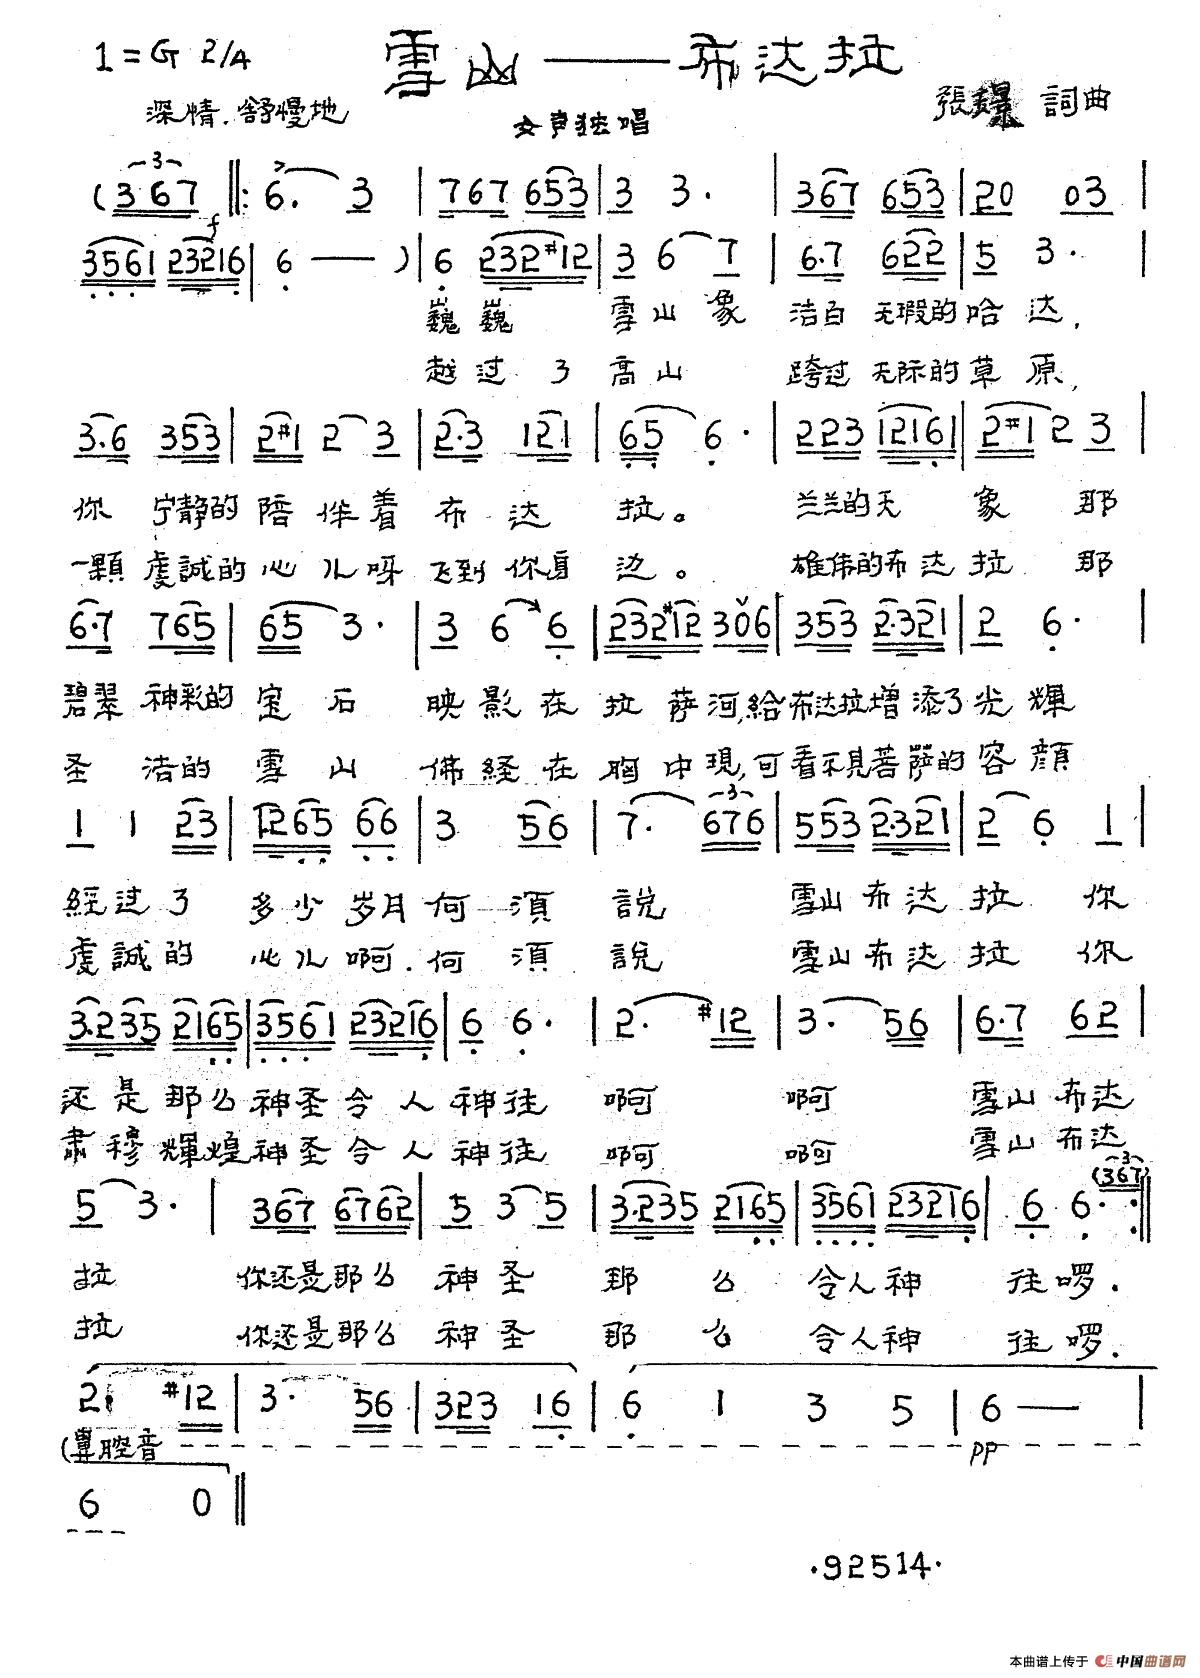 1=G 2/4 雪山——布达拉
深情.舒慢地 女声独唱 張 詞曲
(367 ‖: 6. 3 | 767 653 | 3 3. | 367 653 | 20 03 |
f
3561 23216 | 6 — ) | 6 232#12 | 3 6 7 | 6.7 622 | 5 3. |
巍巍 雪山象 洁白无瑕的哈达,
越过了高山 跨过无际的草原,
3.6 353 | 2#1 2 3 | 2.3 121 | 65 6. | 223 12161 | 2#1 2 3 |
你宁静的陪伴着布达拉。 兰兰的天象那
一顆虔誠的心儿呀飞到你身边。 雄伟的布达拉那
6.7 765 | 65 3. | 3 6 6 | 232#12 306 | 353 2.321 | 2 6. |
碧翠神彩的宝石 映影在拉萨河,給布达拉增添了光輝
圣洁的雪山 佛経在胸中現,可看不見菩萨的容顔
1 1 23 | 1265 66 | 3 56 | 7. 676 | 553 2.321 | 2 6 1 |
經过了多少岁月何須說 雪山布达拉你
虔誠的心儿啊.何須說 雪山布达拉你
3.235 2165 | 3561 23216 | 6 6. | 2. #12 | 3. 56 | 6.7 62 |
还是那么神圣令人神往 啊 啊 雪山布达
肅穆輝煌神圣令人神往 啊 啊 雪山布达
(367)
5 3. | 367 6762 | 5 3 5 | 3.235 2165 | 3561 23216 | 6 6. :‖
拉 你还是那么神圣那么令人神往啰.
拉 你还是那么神圣那么令人神往啰.
2. #12 | 3. 56 | 323 16 | 6 1 3 5 | 6 — |
(鼻腔音 pp
6 0 ‖
·92514·
本曲谱上传于 中国曲谱网